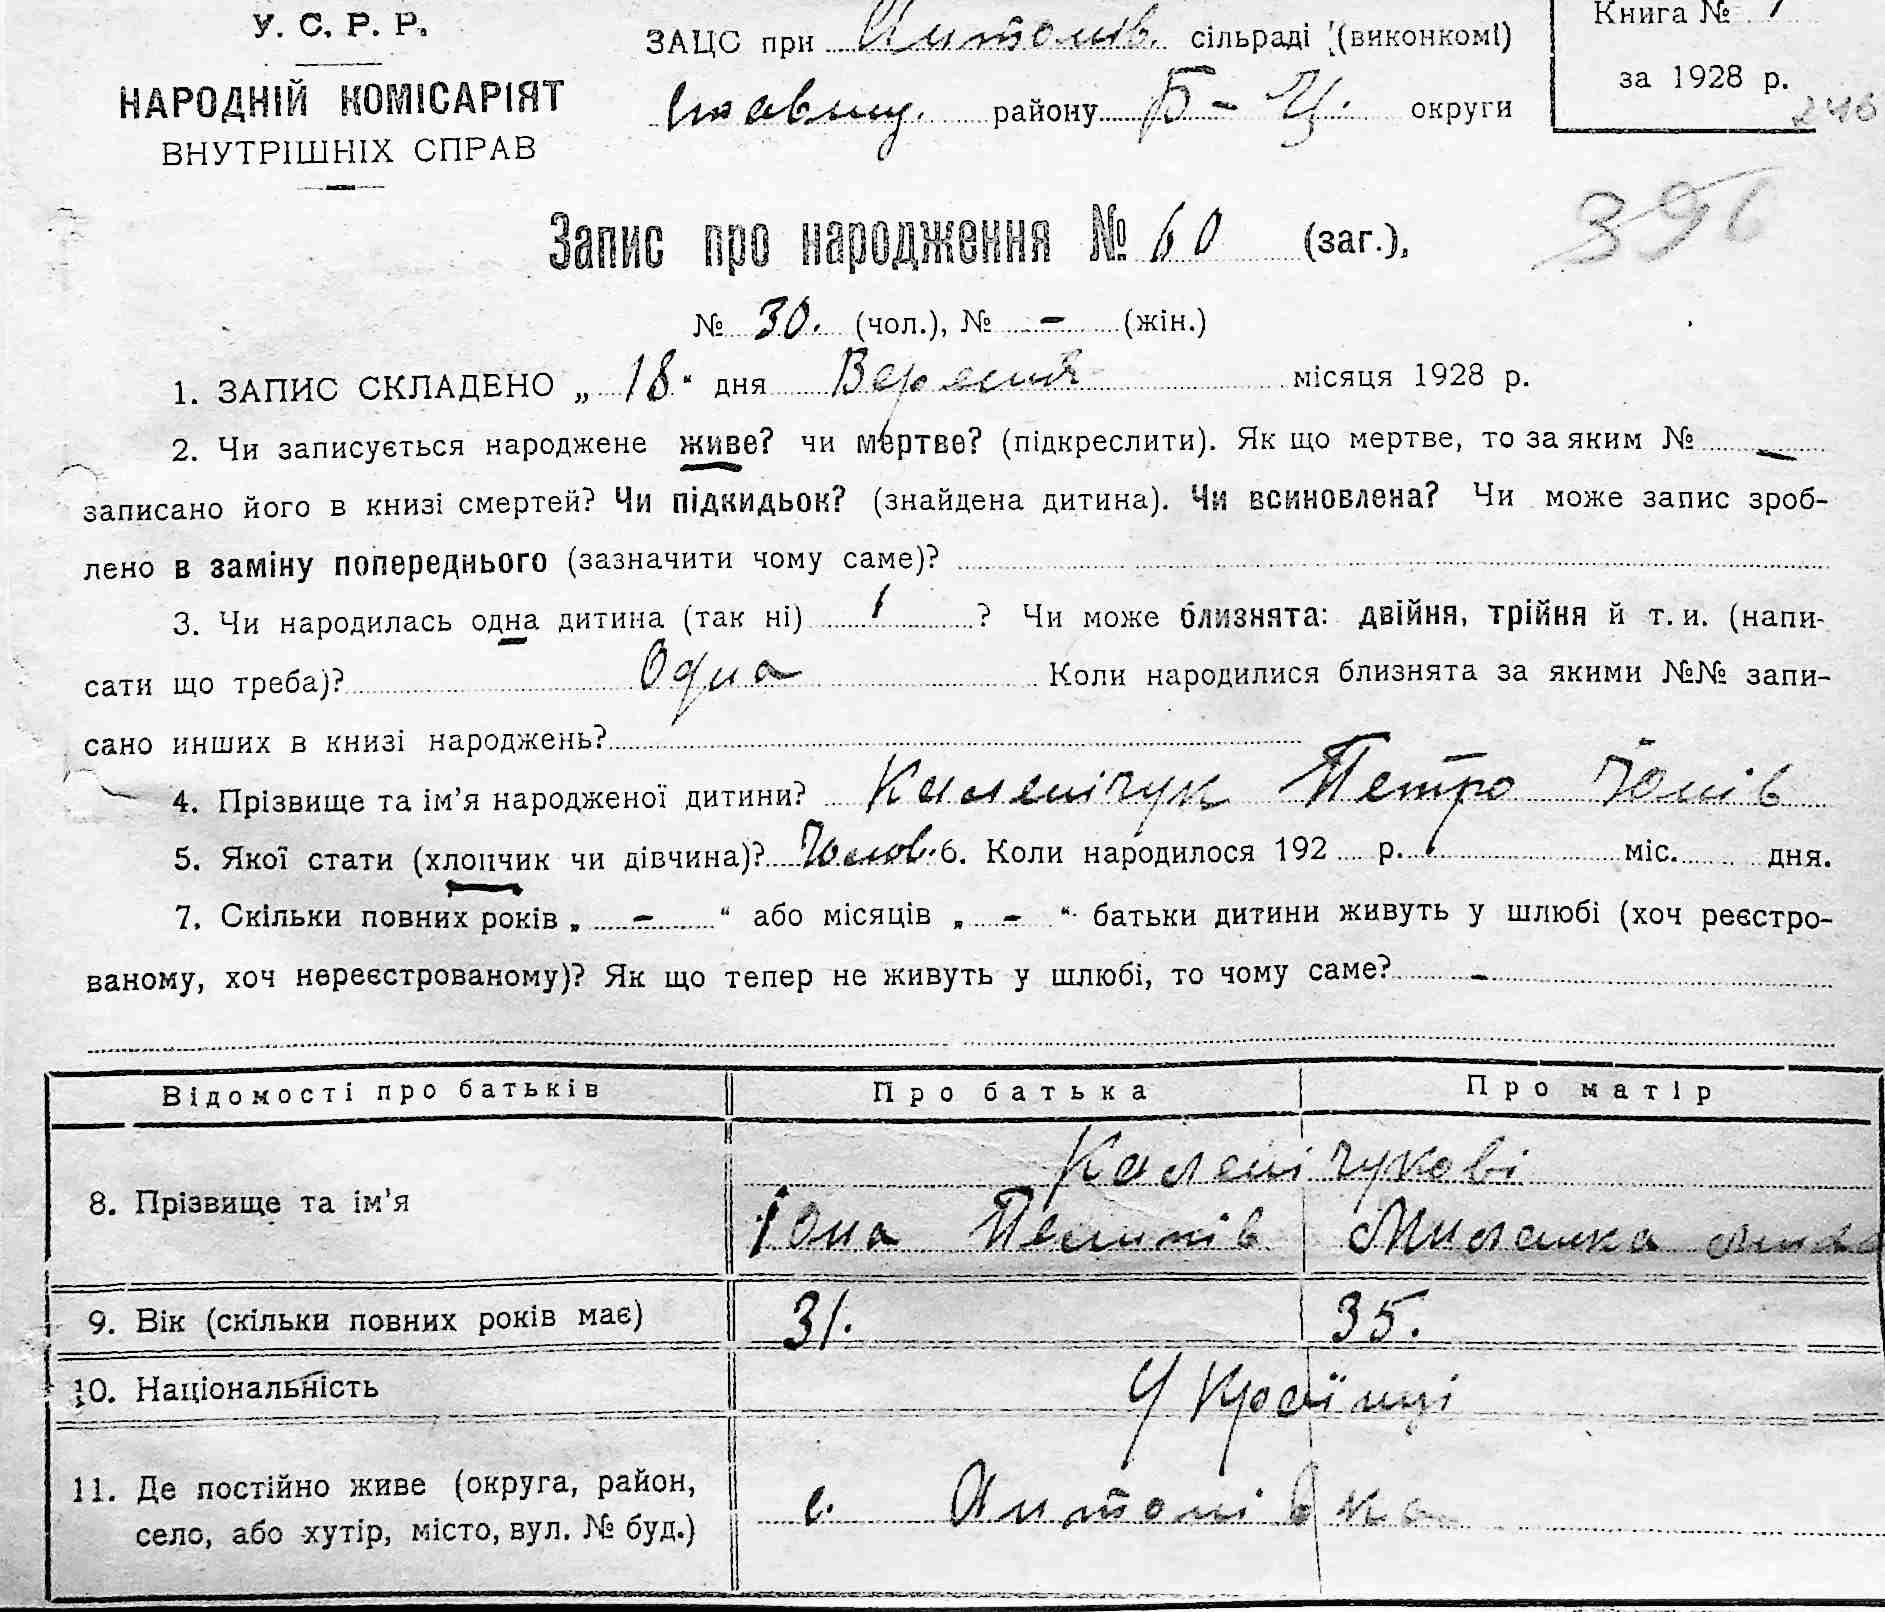 У. С. Р. Р.
НАРОДНІЙ КОМІСАРІЯТ
ВНУТРІШНІХ СПРАВ
ЗАЦС при Антонів. сільраді (виконкомі)
Ставищ. району Б-Ц. округи
Книга №
за 1928 р.
246
396
Запис про народження № 60 (заг.),
№ 30. (чол.), № - (жін.)
1. ЗАПИС СКЛАДЕНО „ 18 “ дня Вересня місяця 1928 р.
2. Чи записується народжене живе? чи мертве? (підкреслити). Як що мертве, то за яким № —
записано його в книзі смертей? Чи підкидьок? (знайдена дитина). Чи всиновлена? Чи може запис зроб-
лено в заміну попереднього (зазначити чому саме)?
3. Чи народилась одна дитина (так ні) 1 ? Чи може близнята: двійня, трійня й т. и. (напи-
сати що треба)? Одна Коли народилися близнята за якими №№ запи-
сано инших в книзі народжень?
4. Прізвище та ім’я народженої дитини? Каленічук Петро Йонів
5. Якої стати (хлопчик чи дівчина)? Чолов. 6. Коли народилося 192 р. міс. дня.
7. Скільки повних років „ - “ або місяців „ - “ батьки дитини живуть у шлюбі (хоч реєстро-
ваному, хоч нереєстрованому)? Як що тепер не живуть у шлюбі, то чому саме? -
Відомості про батьків Про батька Про матір
8. Прізвище та ім’я Каленічукові
Іона Пилипів Миланка
9. Вік (скільки повних років має) 31. 35.
10. Національність Українці
11. Де постійно живе (округа, район,
село, або хутір, місто, вул. № буд.) с. Антонівка